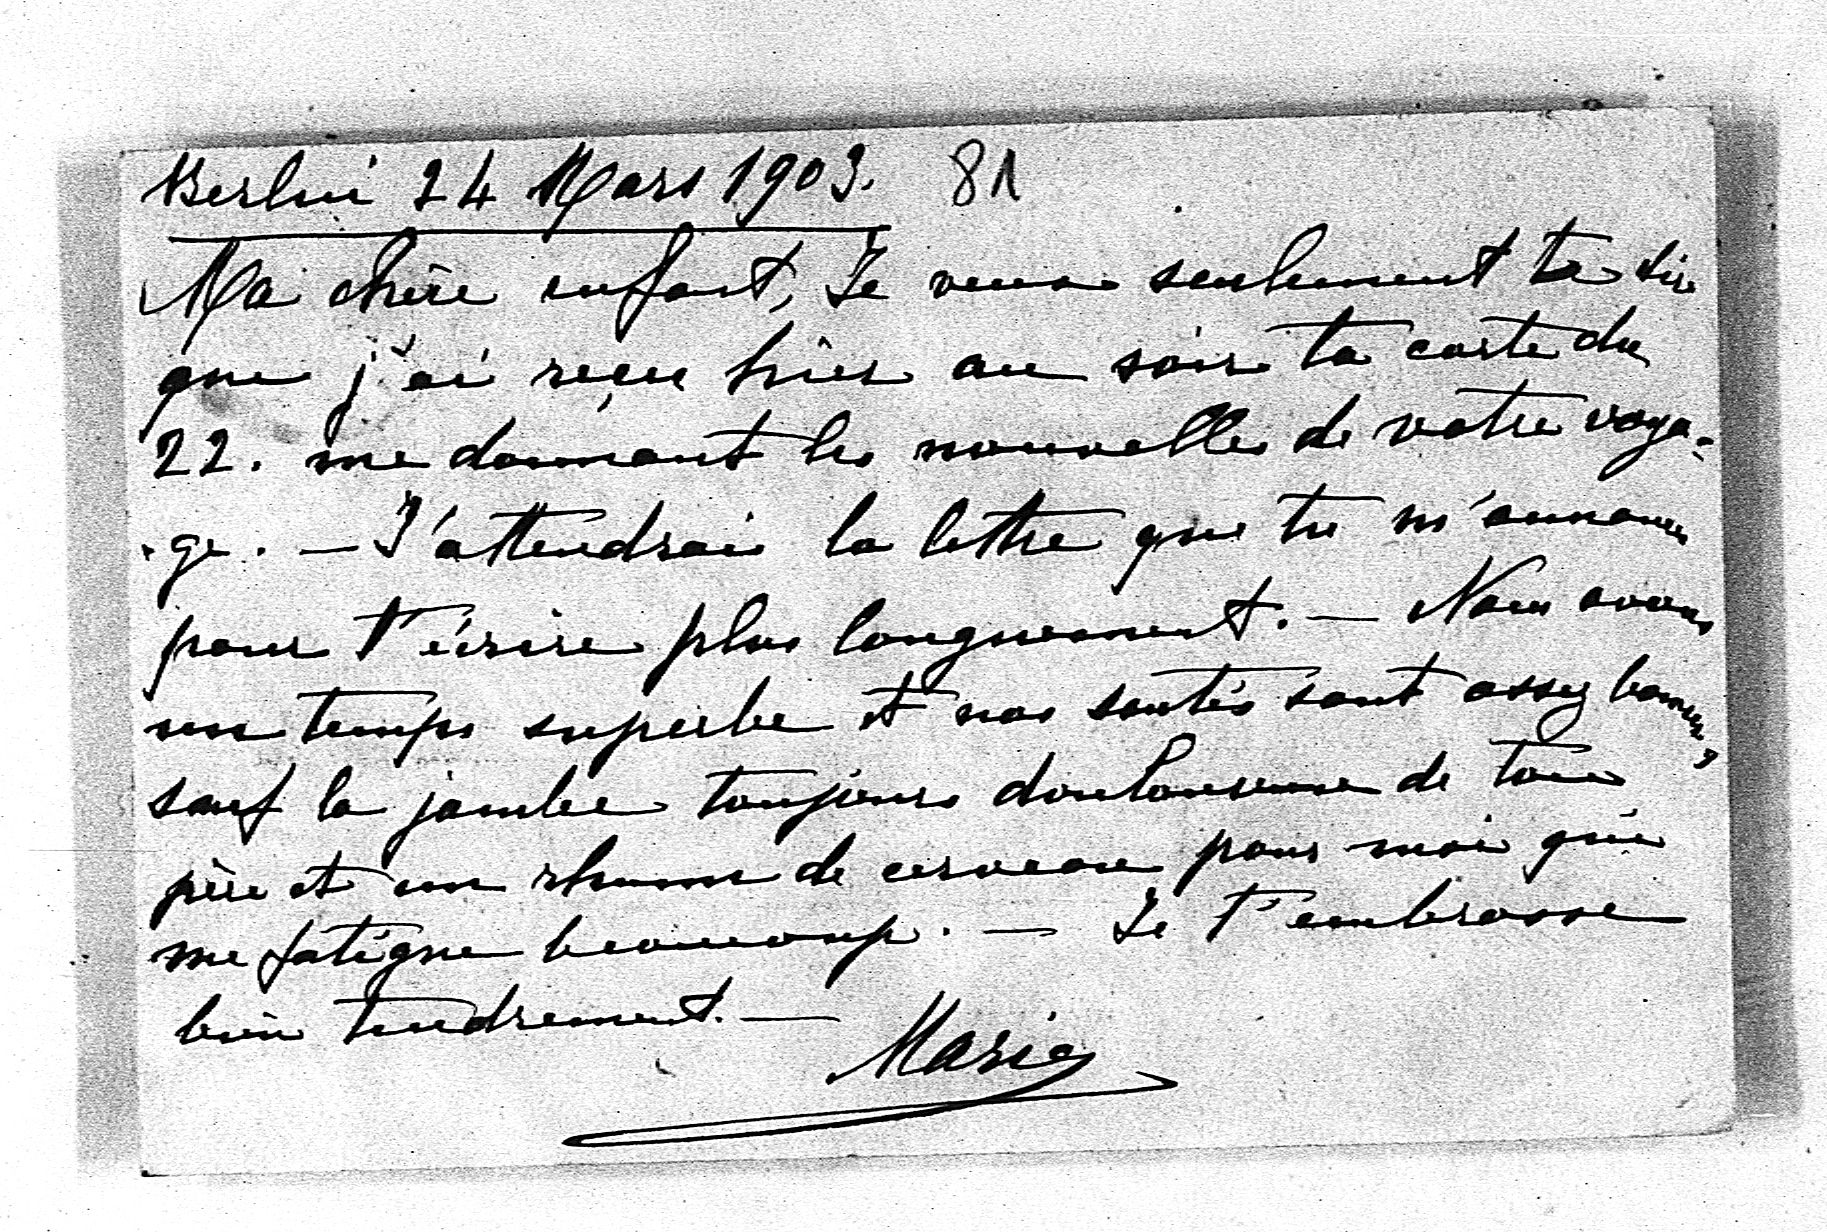 Berlin 24 Mars 1903. 81
Ma chère enfant, Je veux seulement te dire
que j'ai reçu hier au soir ta carte du
22. me donnant les nouvelles de votre voya-
-ge. — J'attendrai la lettre que tu m'annonces
pour t'écrire plus longuement. — Nous avons
un temps superbe et nos santés sont assez bonnes,
sauf la jambe toujours douloureuse de ton
père et un rhume de cerveau pour moi qui
me fatigue beaucoup. — Je t'embrasse
bien tendrement. —
Marie